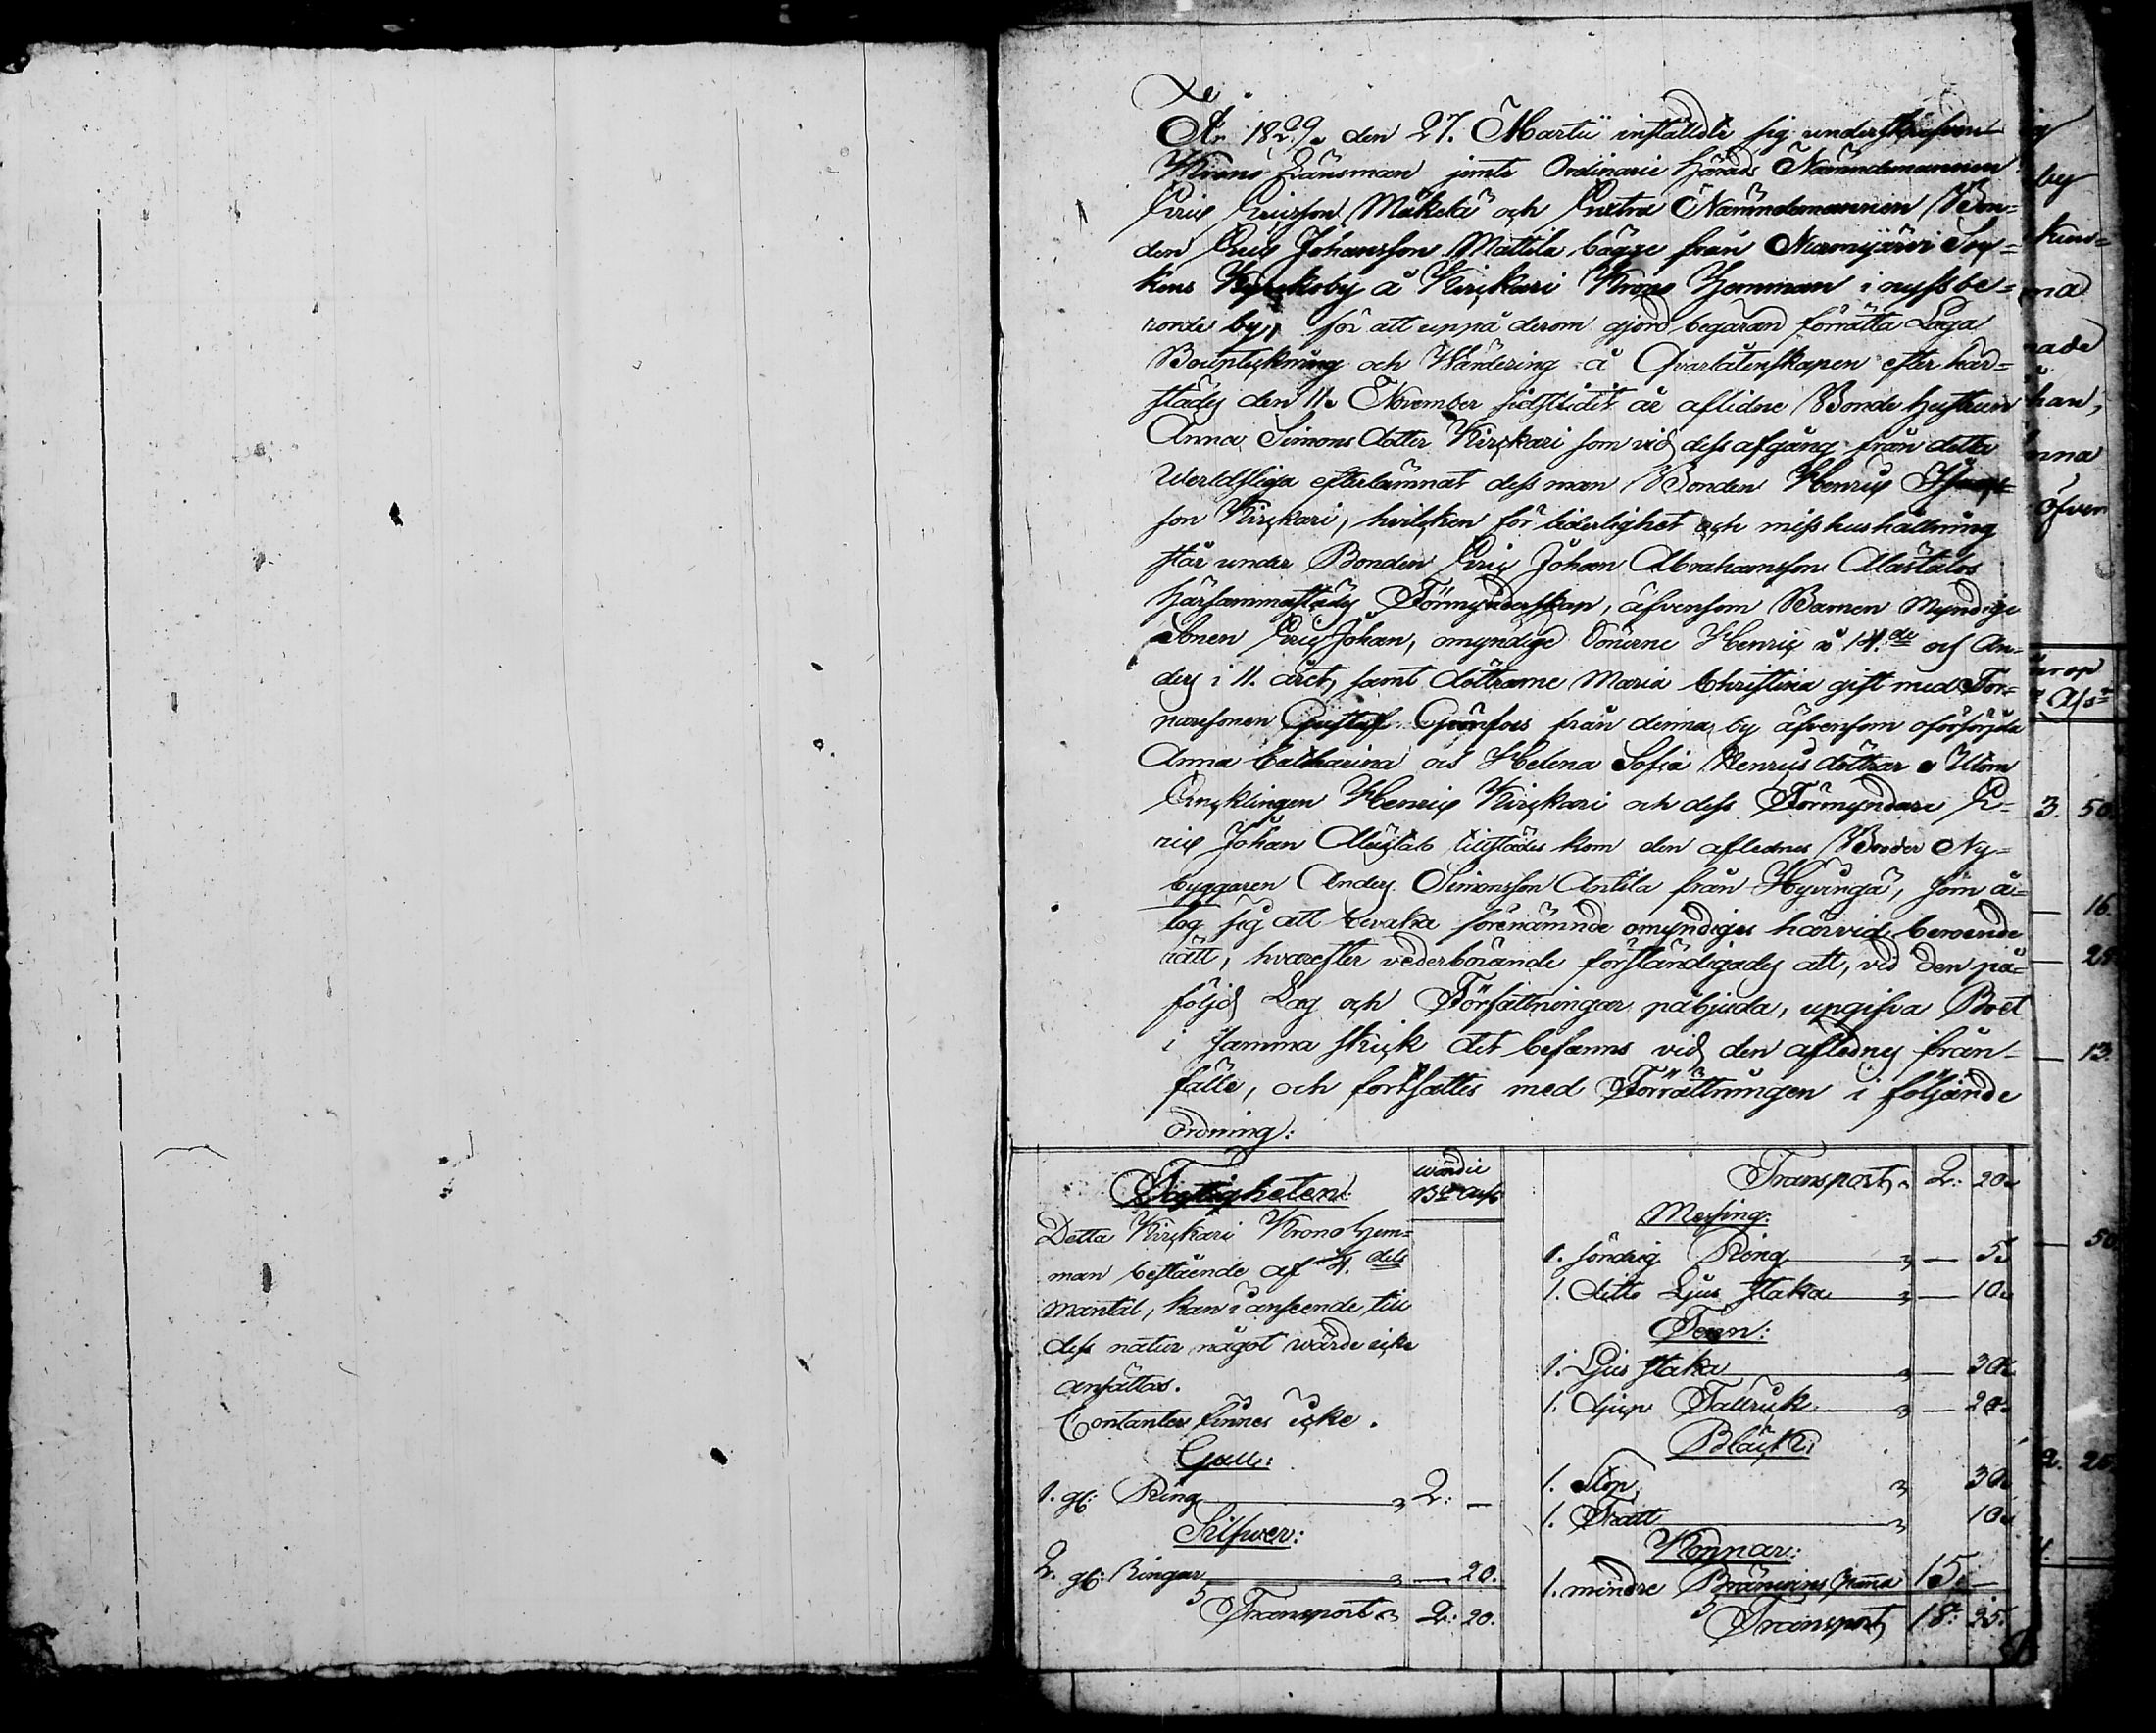 År 1829. den 27. Martii instälde sig underskrefven
Krono Länsman jemte Ordinarie Härads Nämndemannen
Eric Ericsson Mäkelä och Extra Nämndemannen Bon=
den Eric Johansson Mattila bägge från Nurmijärvi Soc=
kens Kyrckoby å Kirckari Krono Hemman i nyssbe=
rörde by, för att uppå derom gjord begäran förrätta Laga
Boupteckning och Wärdering å Qvarlåtenskapen efter här=
städes den 11. November sidstledit år aflidne Bonde hustrun
Anna Simonsdotter Kirckari som vid dess afgång från detta
Werldsliga efterlämnat dess man Bonden Henric
son Kirckari, hvilcken för liderlighet och misshushållning
står under Bonden Eric Johan Abrahamsson Alastalos
härsammastädes Förmynderskap, äfvensom Barnen Myndige
Sonen Eric Johan, omyndige Sönerne Henric å 14.de och An-
ders i 11. året, samt döttrarne Maria Christina gift med Tor=
paresonen Gustaf Grönfors från denna by äfvensom oförsörjda
Anna Catharina och Helena Sofia Henricsdöttrar. Utom
Encklingen Henric Kirckari och dess Förmyndare E-
ric Johan Alastalo tillstädes kom den aflednes Broder Ny=
byggaren Anders Simonsson Antila från Hyvingä, som å=
tog sig att bevaka förenämnde omyndiges härvid beroende
rätt, hvarefter vederbörande förständigades att, vid den på=
följd Lag och Författningar påbjuda, uppgifva Boet
i samma skick det befanns vid den aflednes från-
fälle, och fortsattes med Förrättningen i följande
ordning:
Fastigheten: wärde
Bco Ass:
Detta Kirckari Krono Hem=
man bestående af 1/4. dels
mantal, kan i anseende till
dess natur något wärde icke
ansättas.
Contanter finnes icke.
Gull:
1. gl: Ring 2: —
Silfwer:
2. gl: Ringar — 20.
Transport 2: 20.
Transport 2: 20.
Messing:
1. söndrig Ring — 5.
1. ditto Ljus staka — 10.
Tenn:
1. Ljus staka — 30.
1. djup Tallrick — 20.
Bläck:
1. Stop 30.
1. Tratt 10.
Kannar:
1. mindre Bränwins Panna 15. —
Transport 18: 25.
by
kun=
na
han,
nna
öfver
3. 50.
— 16.
— 13.
— 50.